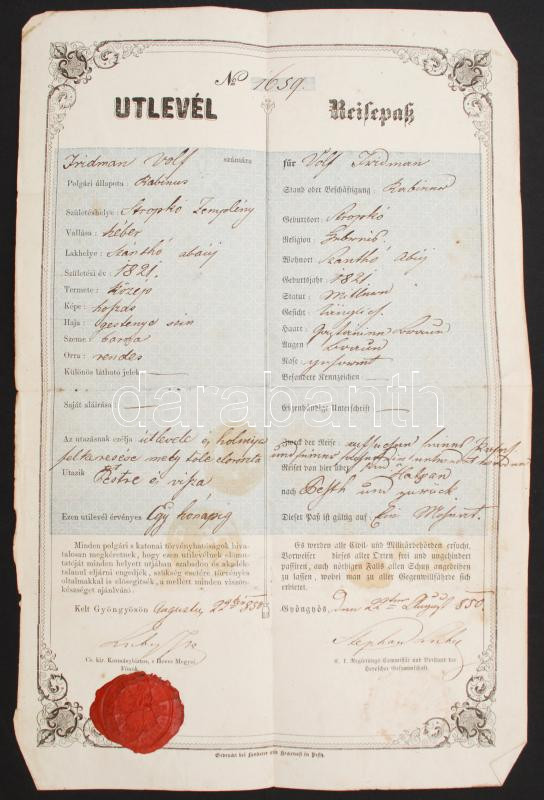 No 1659.
UTLEVÉL
Fridman Volf számára
Polgári állapota: Rabinus
Születéshelye: Stropkó Zemplény
Vallása: héber
Lakhelye: Szánthó abauj
Születési év: 1821.
Termete: közép
Képe: hoszas
Haja: Gestenye szin
Szeme: barna
Orra: rendes
Különös látható jelek:
Saját aláirása:
Az utazásnak czélja útlevele és holmija
felkeresése mely tőle
Utazik Pestre és visza
Ezen utlevél érvényes Egy hónapig
Minden polgári s katonai törvényhatóságok hiva-
talosan megkéretnek, hogy ezen utlevélnek elmuta-
tóját minden helyett utjában szabadon és akadék-
talanul eljárni engedjék, szükség esetére törvényes
oltalmakkal is elősegitsék, a mellett minden viszon-
készséget ajánlván.
Kelt Gyöngyösön Augustus 22én 850
Cs. kir. Kormánybiztos, s Heves Megyei
Főnök.
Reisepaß
für Volf Fridman
Stand oder Beschäftigung: Rabiner
Geburtsort: Stropkó
Religion:
Wohnort: Szanthó Abuj
Geburtsjahr: 1821
Statur: Mittlern
Gesicht: länglich
Haare: Gastanien Braun
Augen: Braun
Nase:
Besondere Kennzeichen
Eigenhändige Unterschrift
Zweck der Reise: aufsuchen seines
und seiner
Reiset von hier über Hatvan
nach Pesth und zurück.
Dieser Paß ist gültig auf: Ein Monat.
Es werden alle Civil- und Militärbehörden ersucht,
Vorweiser dieses aller Orten frei und ungehindert
passiren, auch nöthigen Falls allen Schutz angedeihen
zu lassen, wobei man zu aller Gegenwillfährde sich
erbietet.
Gyöngyös, den 22ten August 850.
K. k. Regierungs-Commissär und Vorstand der
Heveser Gespannschaft.
Gedruckt bei Landerer und Heckenast in Pesth.
darabanth